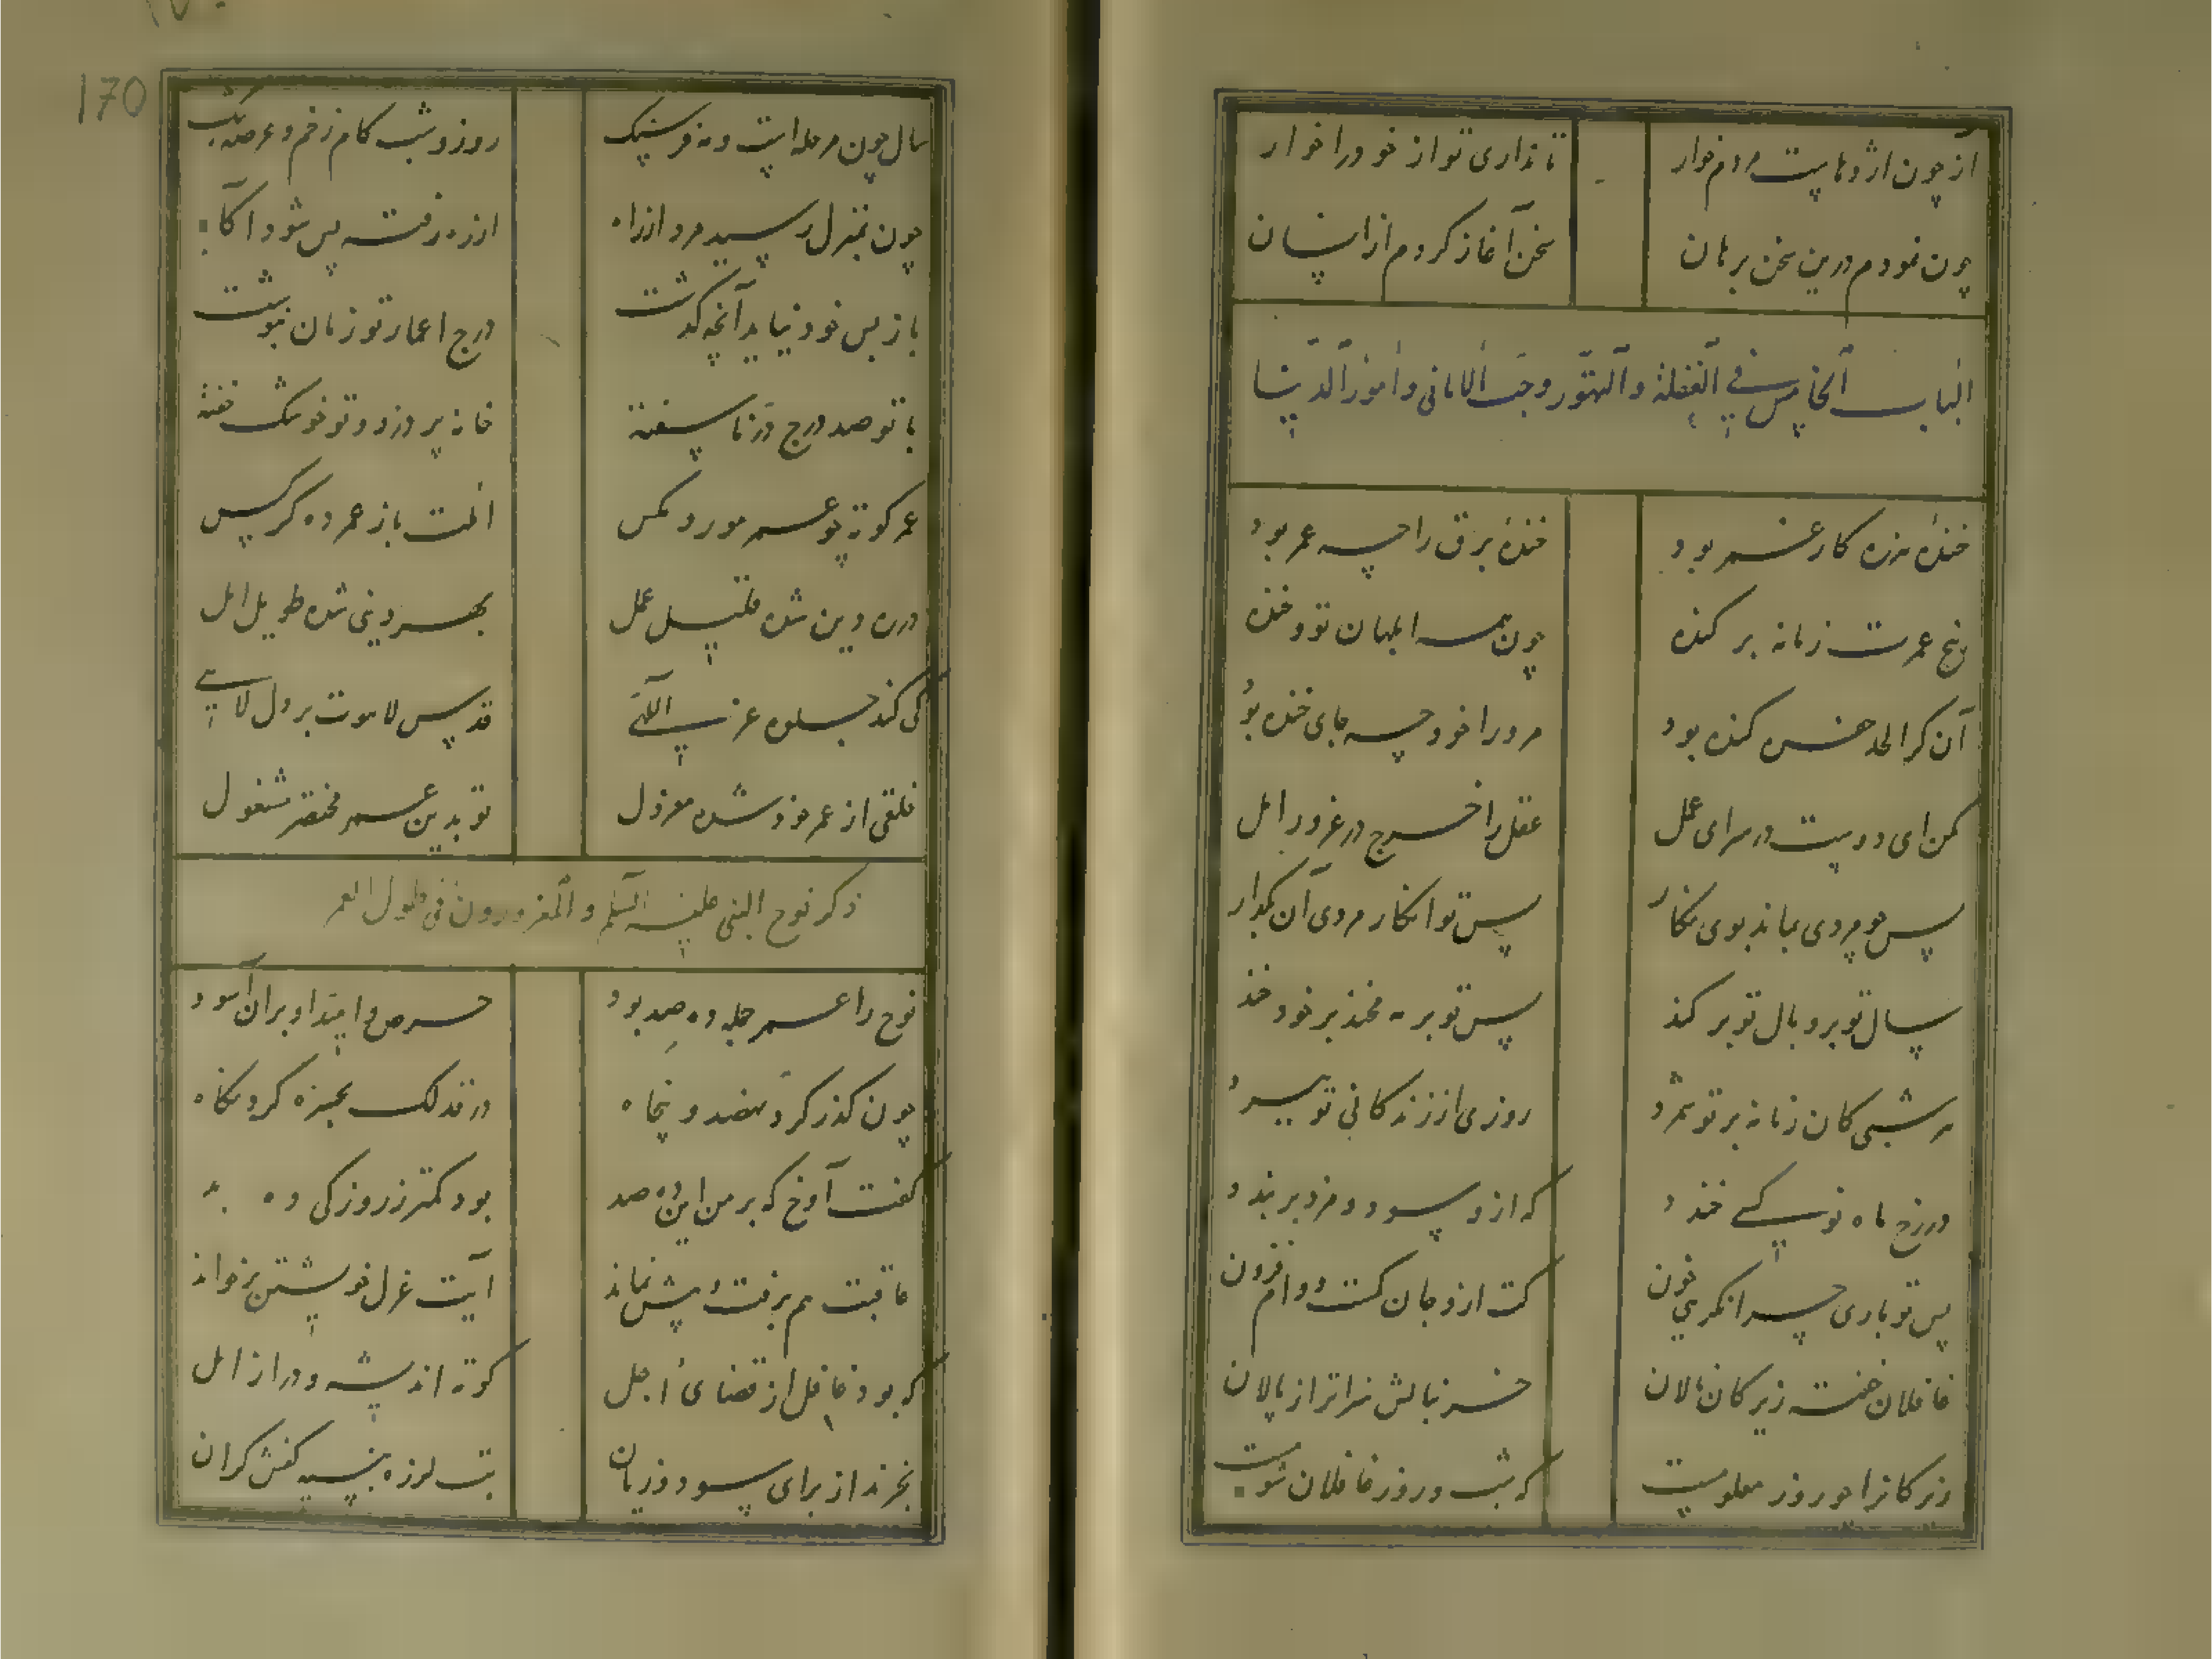 آز چون اژدهاست مردم خوار
تا نداری تو از خود را خوار
چون نمودم درین سخن برهان
سخن آغاز کردم از انسان
الباب الخامس فی الغفلة والتهوّر وحب الامانی وامور الدنیا
خندهٔ هرزه کار غمر بود
خندهٔ برق را چه عمر بود
بیخ عمرت زمانه بر کنده
چون همه ابلهان تو و خنده
آن کرا لحد حفره کنده بود
مرد را خود چه جای خنده بود
مکن ای دوست در سرای عمل
عقل را خرج در غرور امل
پس چو مردی بماند بوی نکار
پس تو انکار مردی آن بکذار
سال تو بر و بال تو بر کند
پس تو بر مخند بر خود خند
هر شبی کان زمانه بر تو شمرد
روزی از زندکانی تو ببرد
در رخ ماه نو کسی خندد
که ازو سود و مزد بر بندد
پس تو باری چرا نکریی خون
کت ازو جان کست و وام افزون
غافلان خفته زیرکان نالان
خر نبالش سزاتر از پالان
زیرکانرا چو روز معلومست
که شب و روز غافلان شومست
170
سال چون مرحله است و مه فرسنک
روز و شب کام زخم و عرصه تنک
چون بمنزل رسید مرد از راه
از ره رفته پس شود آکاه
باز پس خود نیاید آنچه کذشت
درج اعمار تو زمان بنوشت
با تو صد درج در ناسفته
خانه پر دزد و تو خوشک خفته
عمر کوته چو عمر مور و مکس
املت باز عمر ده کرکس
در ره دین شده قلیل عمل
بهر دنیی شده طویل امل
کی کند جلوه عزت اللهی
قدس لاهوت بر دل لاهی
خلقی از عمر خود شده معزول
تو بدین عمر مختصر مشغول
ذکر نوح النبی علیه السلم والمغرورون فی طول العمر
نوح را عمر جمله ده صد بود
حرص و امید او بران آسود
چون کذر کرد نهصد و پنجاه
در فذلک بحیره کرد نکاه
کفت آوخ که بر من این ده صد
بود کمتر ز روزکی ده بد
عاقبت هم برفت و بیش نماند
آیت عزل خویشتن برخواند
که بود غافل از قضای اجل
کوته اندیشه و دراز امل
نخرند از برای سود و زیان
تب لرزه بنسیه کفش کران